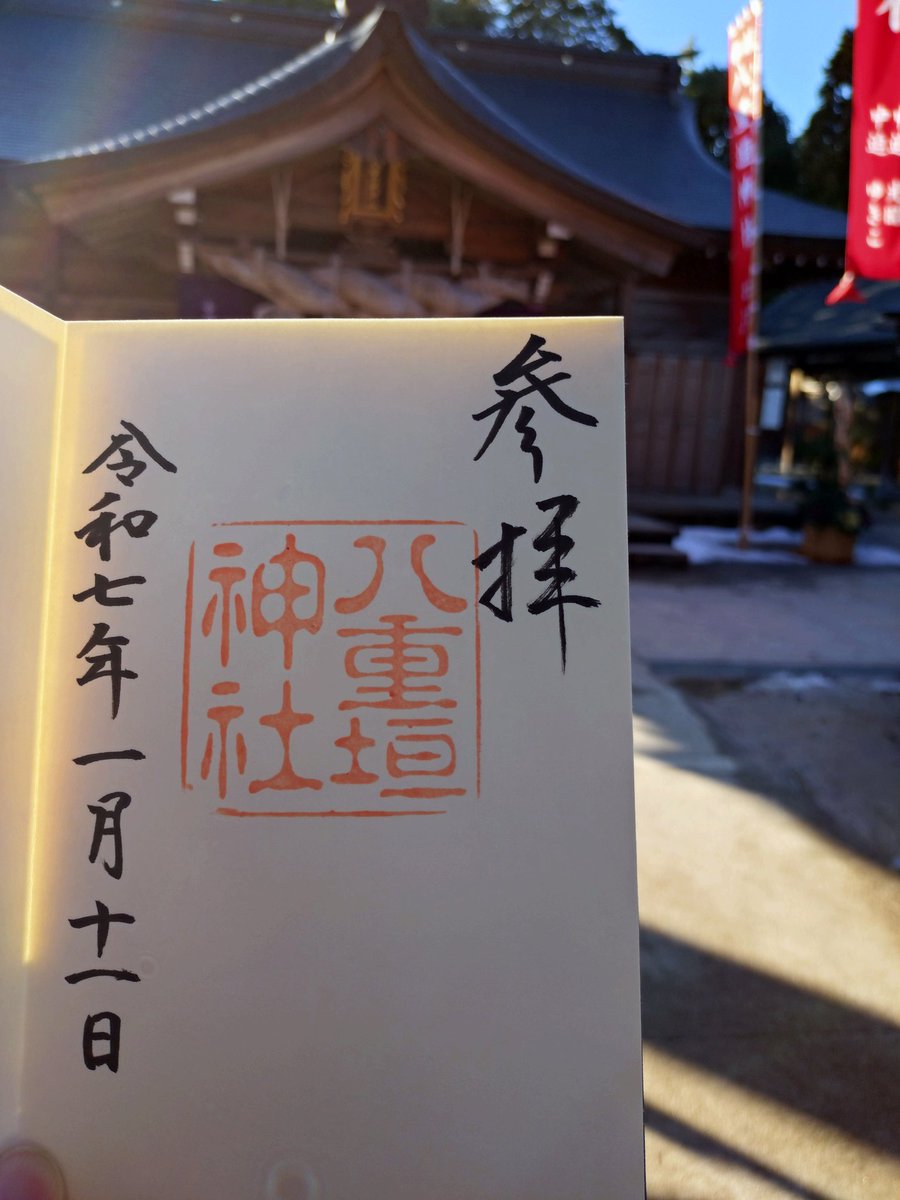 参拝
八重垣
神社
令和七年一月十一日